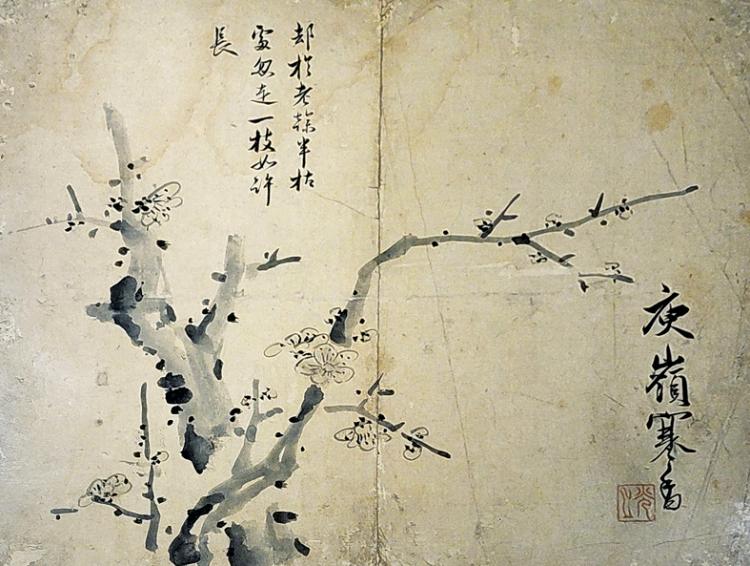 庾嶺寒香
却於老榦半枯
處忽走一枝如許
長